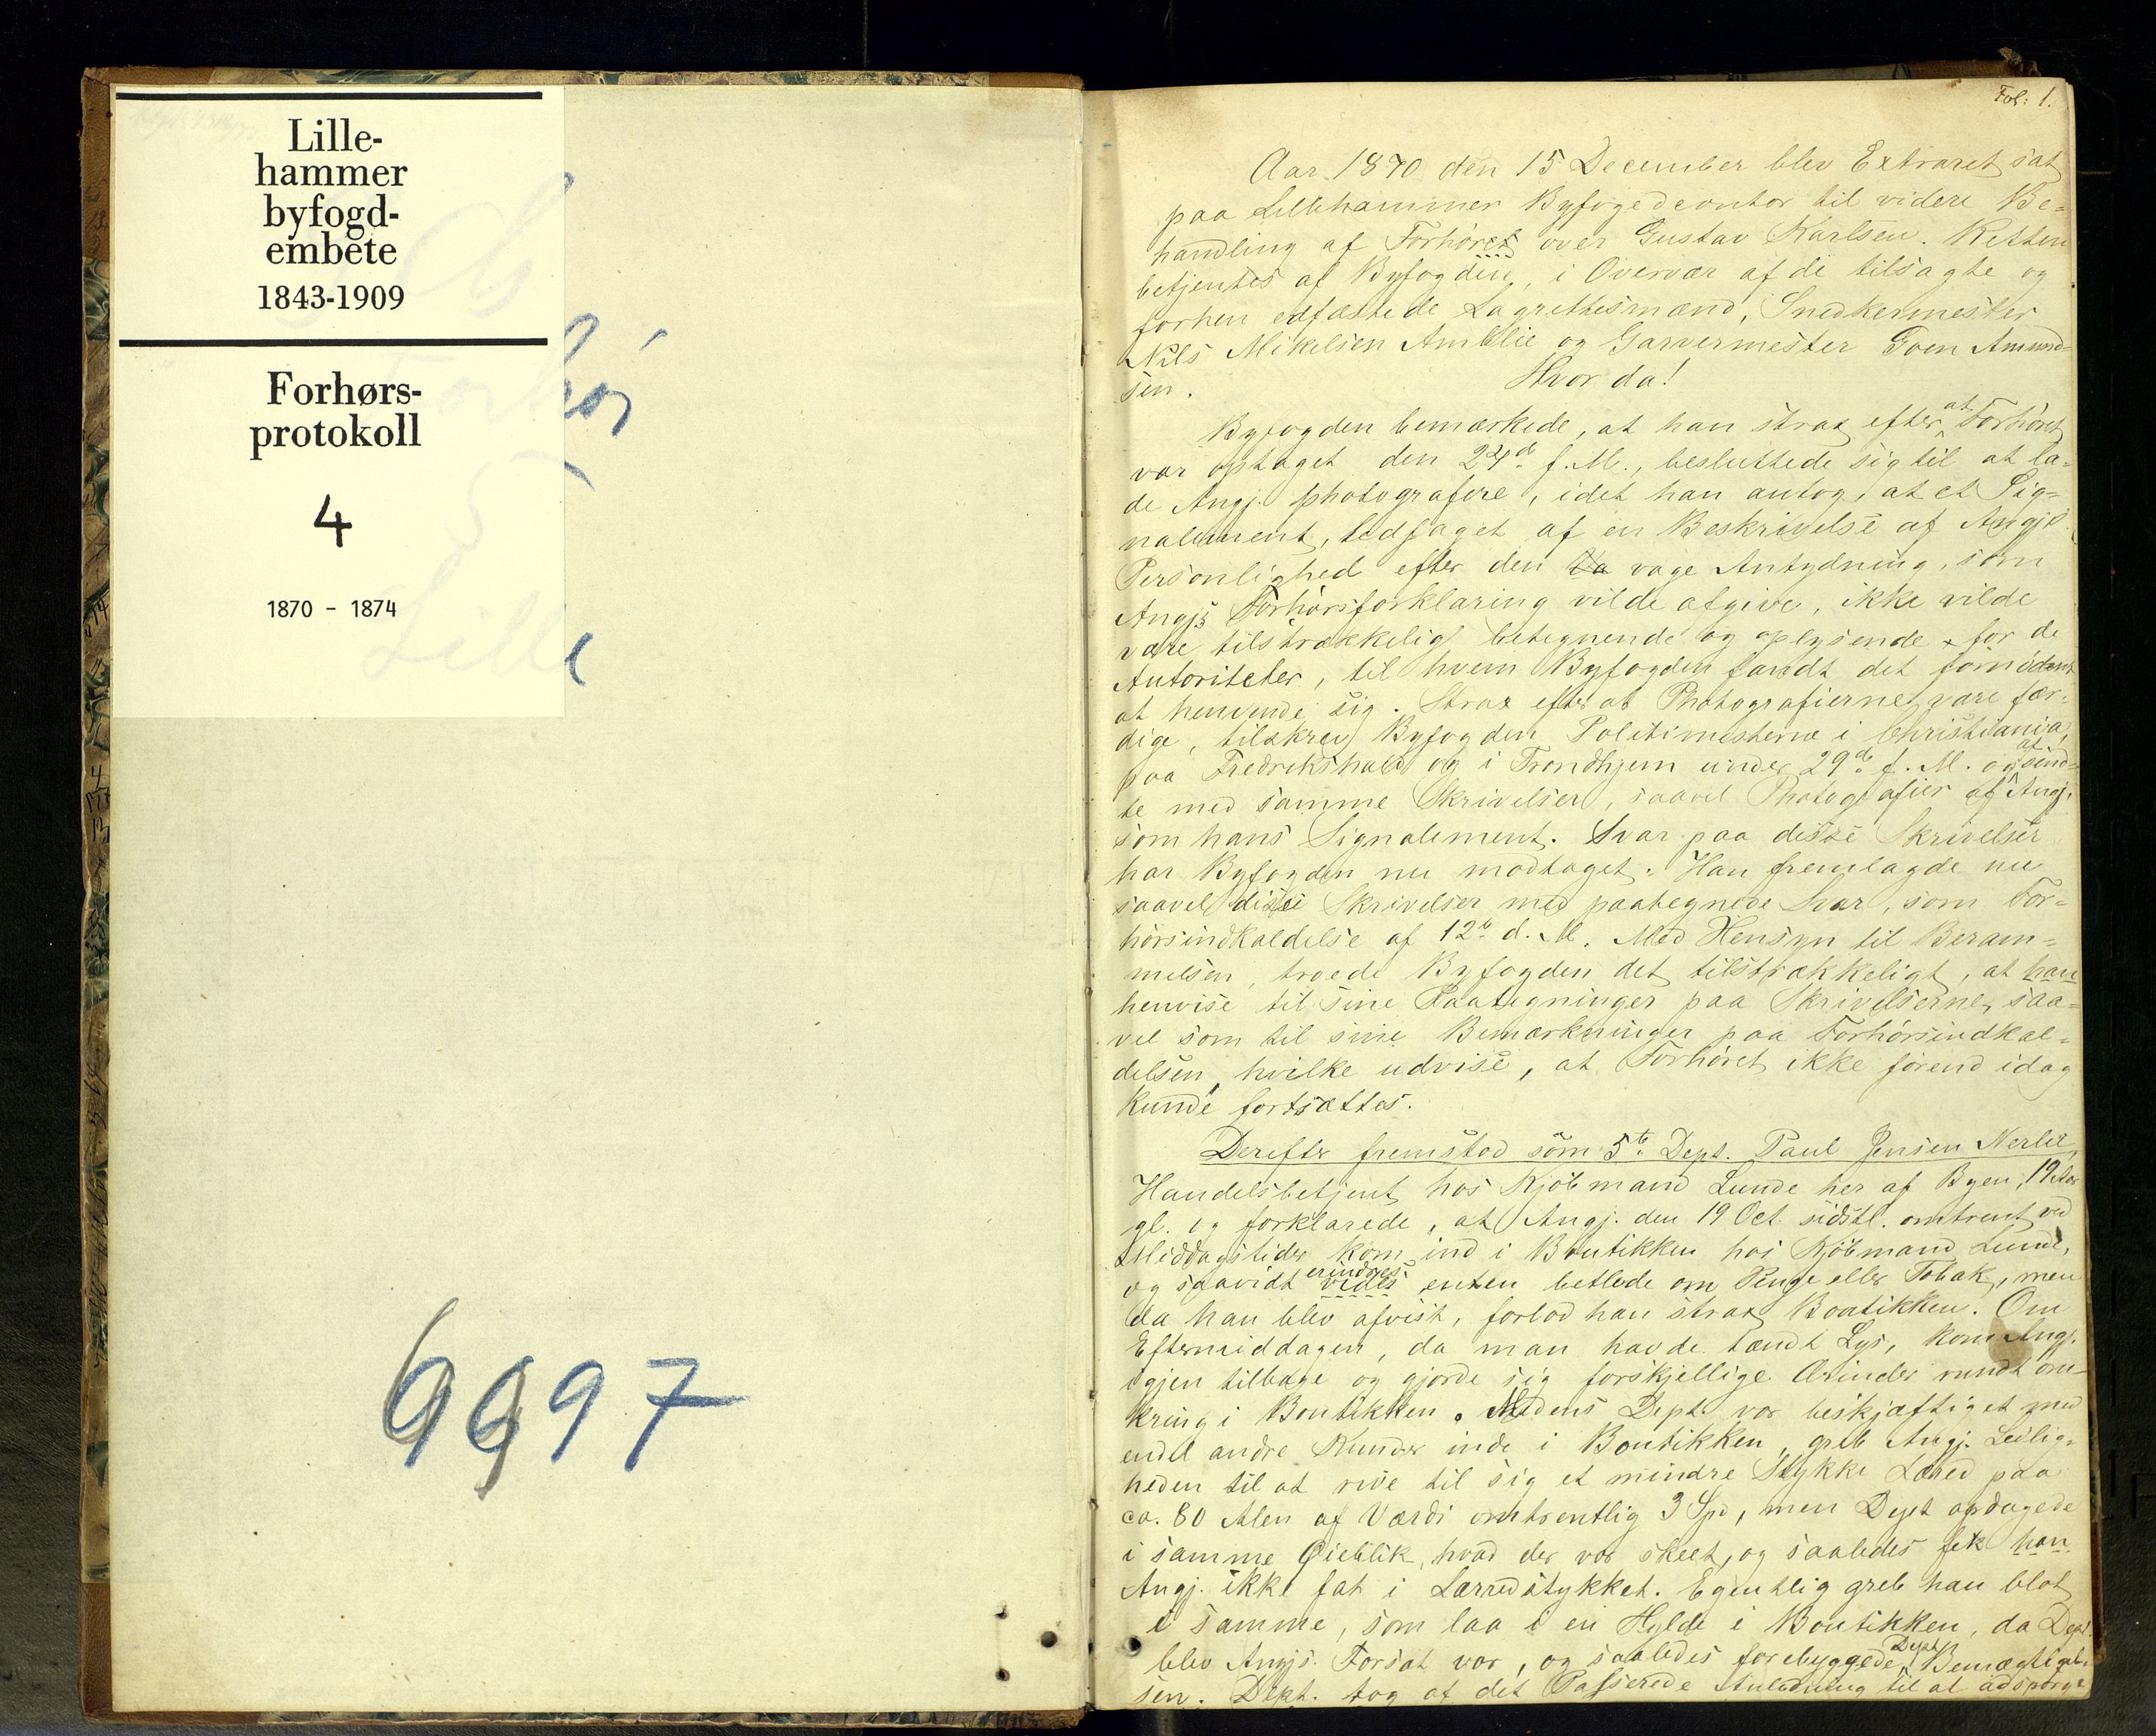 Lille-
hammer
byfogd-
embete
1843-1909
Forhørs-
protokoll
4
1870 - 1874
6997
Fol: 1.
Aar 1870 den 15 December blev Extraret sat
paa Lillehammer Byfogedcontor til videre Be=
handling af Forhøret over Gustav Karlsen. Retten
betjentes af Byfogden, i Overvær af de tilsagte og
forhen edfæstede Lagrettesmænd, Snedkermester
Nils Mikelsen Amblie og Garvermester Gven Amund=
sen. Hvor da!
Byfogden bemærkede, at han strax efter at Forhöret
var optaget den 24d. f. M., besluttede sig til at la=
de Angj. photografere, idet han antog, at et Sig=
nalement, ledsaget af en Beskrivelse af Angjs
Personlighed efter den va vage Antydning, som
Angjs Forhörsforklaring vilde afgive, ikke vilde
være tilstrækkelig betegnende og oplysende for de
Autoriteter, til hvem Byfogden fandt det fornödent
at henvende sig. Strax efter at Photografierne vare fær=
dige, tilskrev Byfogden Politimesterne i Christiania,
paa Fredrikshald og i Trondhjem under 29d. f. M. og at send=
te med samme Skrivelser, saavel Photografier af Angj.
som hans Signalement. Svar paa disse Skrivelser
har Byfogden nu modtaget. Han fremlagde nu
saavel disse Skrivelser med paategnede Svar, som For=
hörsindkaldelse af 12te d. M. Med Hensyn til Beram=
melsen, troede Byfogden det tilstrækkeligt, at han
henvise til sine Paategninger paa Skrivelserne, saa=
vel som til sine Bemærkninger paa Forhörsindkal=
delsen, hvilke udvise, at Forhöret ikke förend idag
kunde fortsættes.
Derefter fremstod som 5te Dept. Paul Jensen Nerlie,
Handelsbetjent hos Kjöbmand Lunde her af Byen, 19 Aar
gl. og forklarede, at Angj. den 19 Oct. sidstl. omtrent ved
Middagstider kom ind i Boutikken hos Kjöbmand Lunde,
og saavidt vides erindres enten betlede om Penge eller Tobak, men
da han blev afvist, forlod han strax Boutikken. Om
Eftermiddagen, da man havde tændt Lys, kom Angj.
igjen tilbage og gjorde sig forskjellige Ærinder rundt om=
kring i Boutikken. Medens Dept. var beskjæftiget med
endel andre Kunder inde i Boutikken, greb Angj. Leilig=
heden til at rive til sig et mindre Stykke Lærred paa
ca. 80 Alen af Værdi omtrentlig 3 Spd, men Dept opdagede
i samme Øieblik, hvad der var skeet, og saaledes fik han
Angj. ikke fat i Lærredstykket. Egentlig greb han blot
i samme, som laa i en Hylde i Boutikken, da Dept.
blev Angjs. Forsæt var, og saaledes forebyggede Dept. Bemægtigel=
sen. Dept. tog af det Passerede Anledning til at adspörge